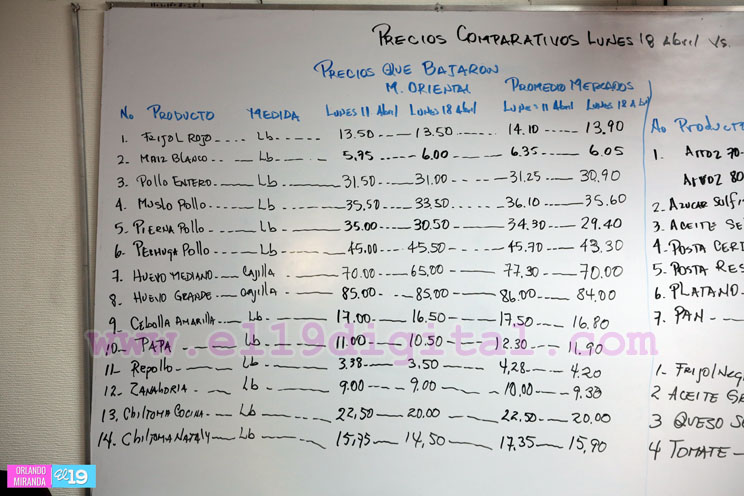 PRECIOS COMPARATIVOS LUNES 18 Abril Vs.
PRECIOS QUE BAJARON
M. ORIENTAL PROMEDIO MERCADOS
No PRODUCTO MEDIDA LUNES 11 Abril LUNES 18 Abril LUNES 11 Abril LUNES 18 Abril
1. FRIJOL ROJO Lb 13.50 13.50 14.10 13.90
2. MAIZ BLANCO Lb 5.75 6.00 6.35 6.05
3 POLLO ENTERO Lb 31.50 31.00 31.25 30.90
4. MUSLO POLLO Lb 35,50 33,50 36.10 35.60
5. PIERNA POLLO Lb 35.00 30.50 34.30 29.40
6. PECHUGA POLLO Lb 45.00 45.50 45.70 43.30
7. HUEVO MEDIANO Cajilla 70.00 65.00 77.30 70.00
8. HUEVO GRANDE Cajilla 85.00 85.00 86.00 84.00
9. Cebolla AMARILLA Lb 17.00 16.50 17,50 16.80
10 PAPA Lb 11.00 10.50 12.30 11.90
11- Repollo Lb 3.38 3.50 4,28 4.20
12. ZANAHORIA Lb 9.00 9.00 10,00 9.30
13. Chiltoma COCINA Lb 22,50 20.00 22,50 20.00
14. Chiltoma NATALY Lb 15,75 14,50 17.35 15,90
No PRODUCTO
1. ARROZ 70-
ARROZ 80
2. AZUCAR SULFI
3. ACEITE SE
4. POSTA CER
5. POSTA RES
6. PLATANO
7. PAN
1. FRIJOL NEG
2 ACEITE SE
3 QUESO S
4 TOMATE
www.el19digital.com
ORLANDO
MIRANDA
el19